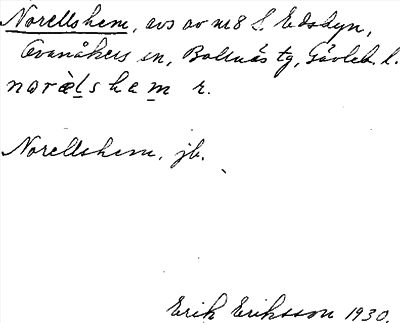 Norellshem, avs av nr 8 S. Edsbyn,
Ovanåkers sn, Bollnäs tg, Gävleb. l.
noræ̀lshem r.
Norellshem, jb.
Erik Eriksson 1930.